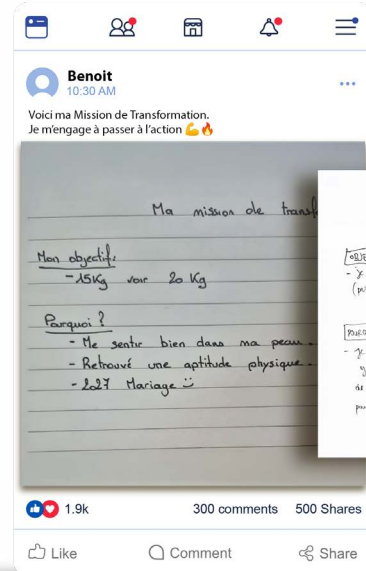 Benoit
10:30 AM
Voici ma Mission de Transformation.
Je m'engage à passer à l'action 💪🔥
Ma mission de transf
Mon objectif:
-15Kg voir 20 Kg
Pourquoi ?
- Me sentir bien dans ma peau.
- Retrouvé une aptitude physique.
- 2027 Mariage
- je
- je
1.9k
300 comments 500 Shares
Like
Comment
Share